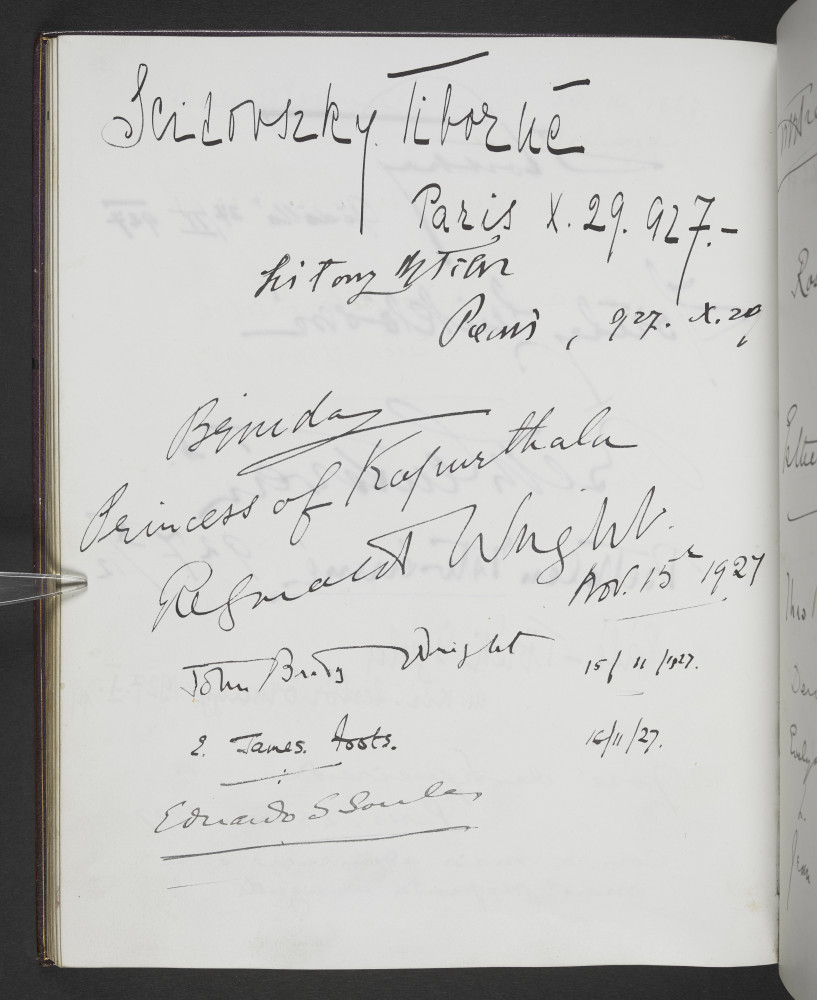 Scitovszky Tiborné
Paris X. 29. 927.-
Paris, 927. X. 29
Brinda
Princess of Kapurthala
Reginald Wright.
Nov. 15 1927
John Wright 15/11/1927.
E. James. 16/11/27.
Eduardo S